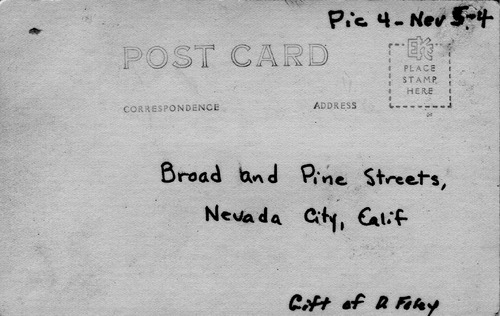 Pic 4 - Nev 5-4
POST CARD
EKC
PLACE
STAMP
HERE
CORRESPONDENCE ADDRESS
Broad and Pine Streets,
Nevada City, Calif
Gift of D Foley